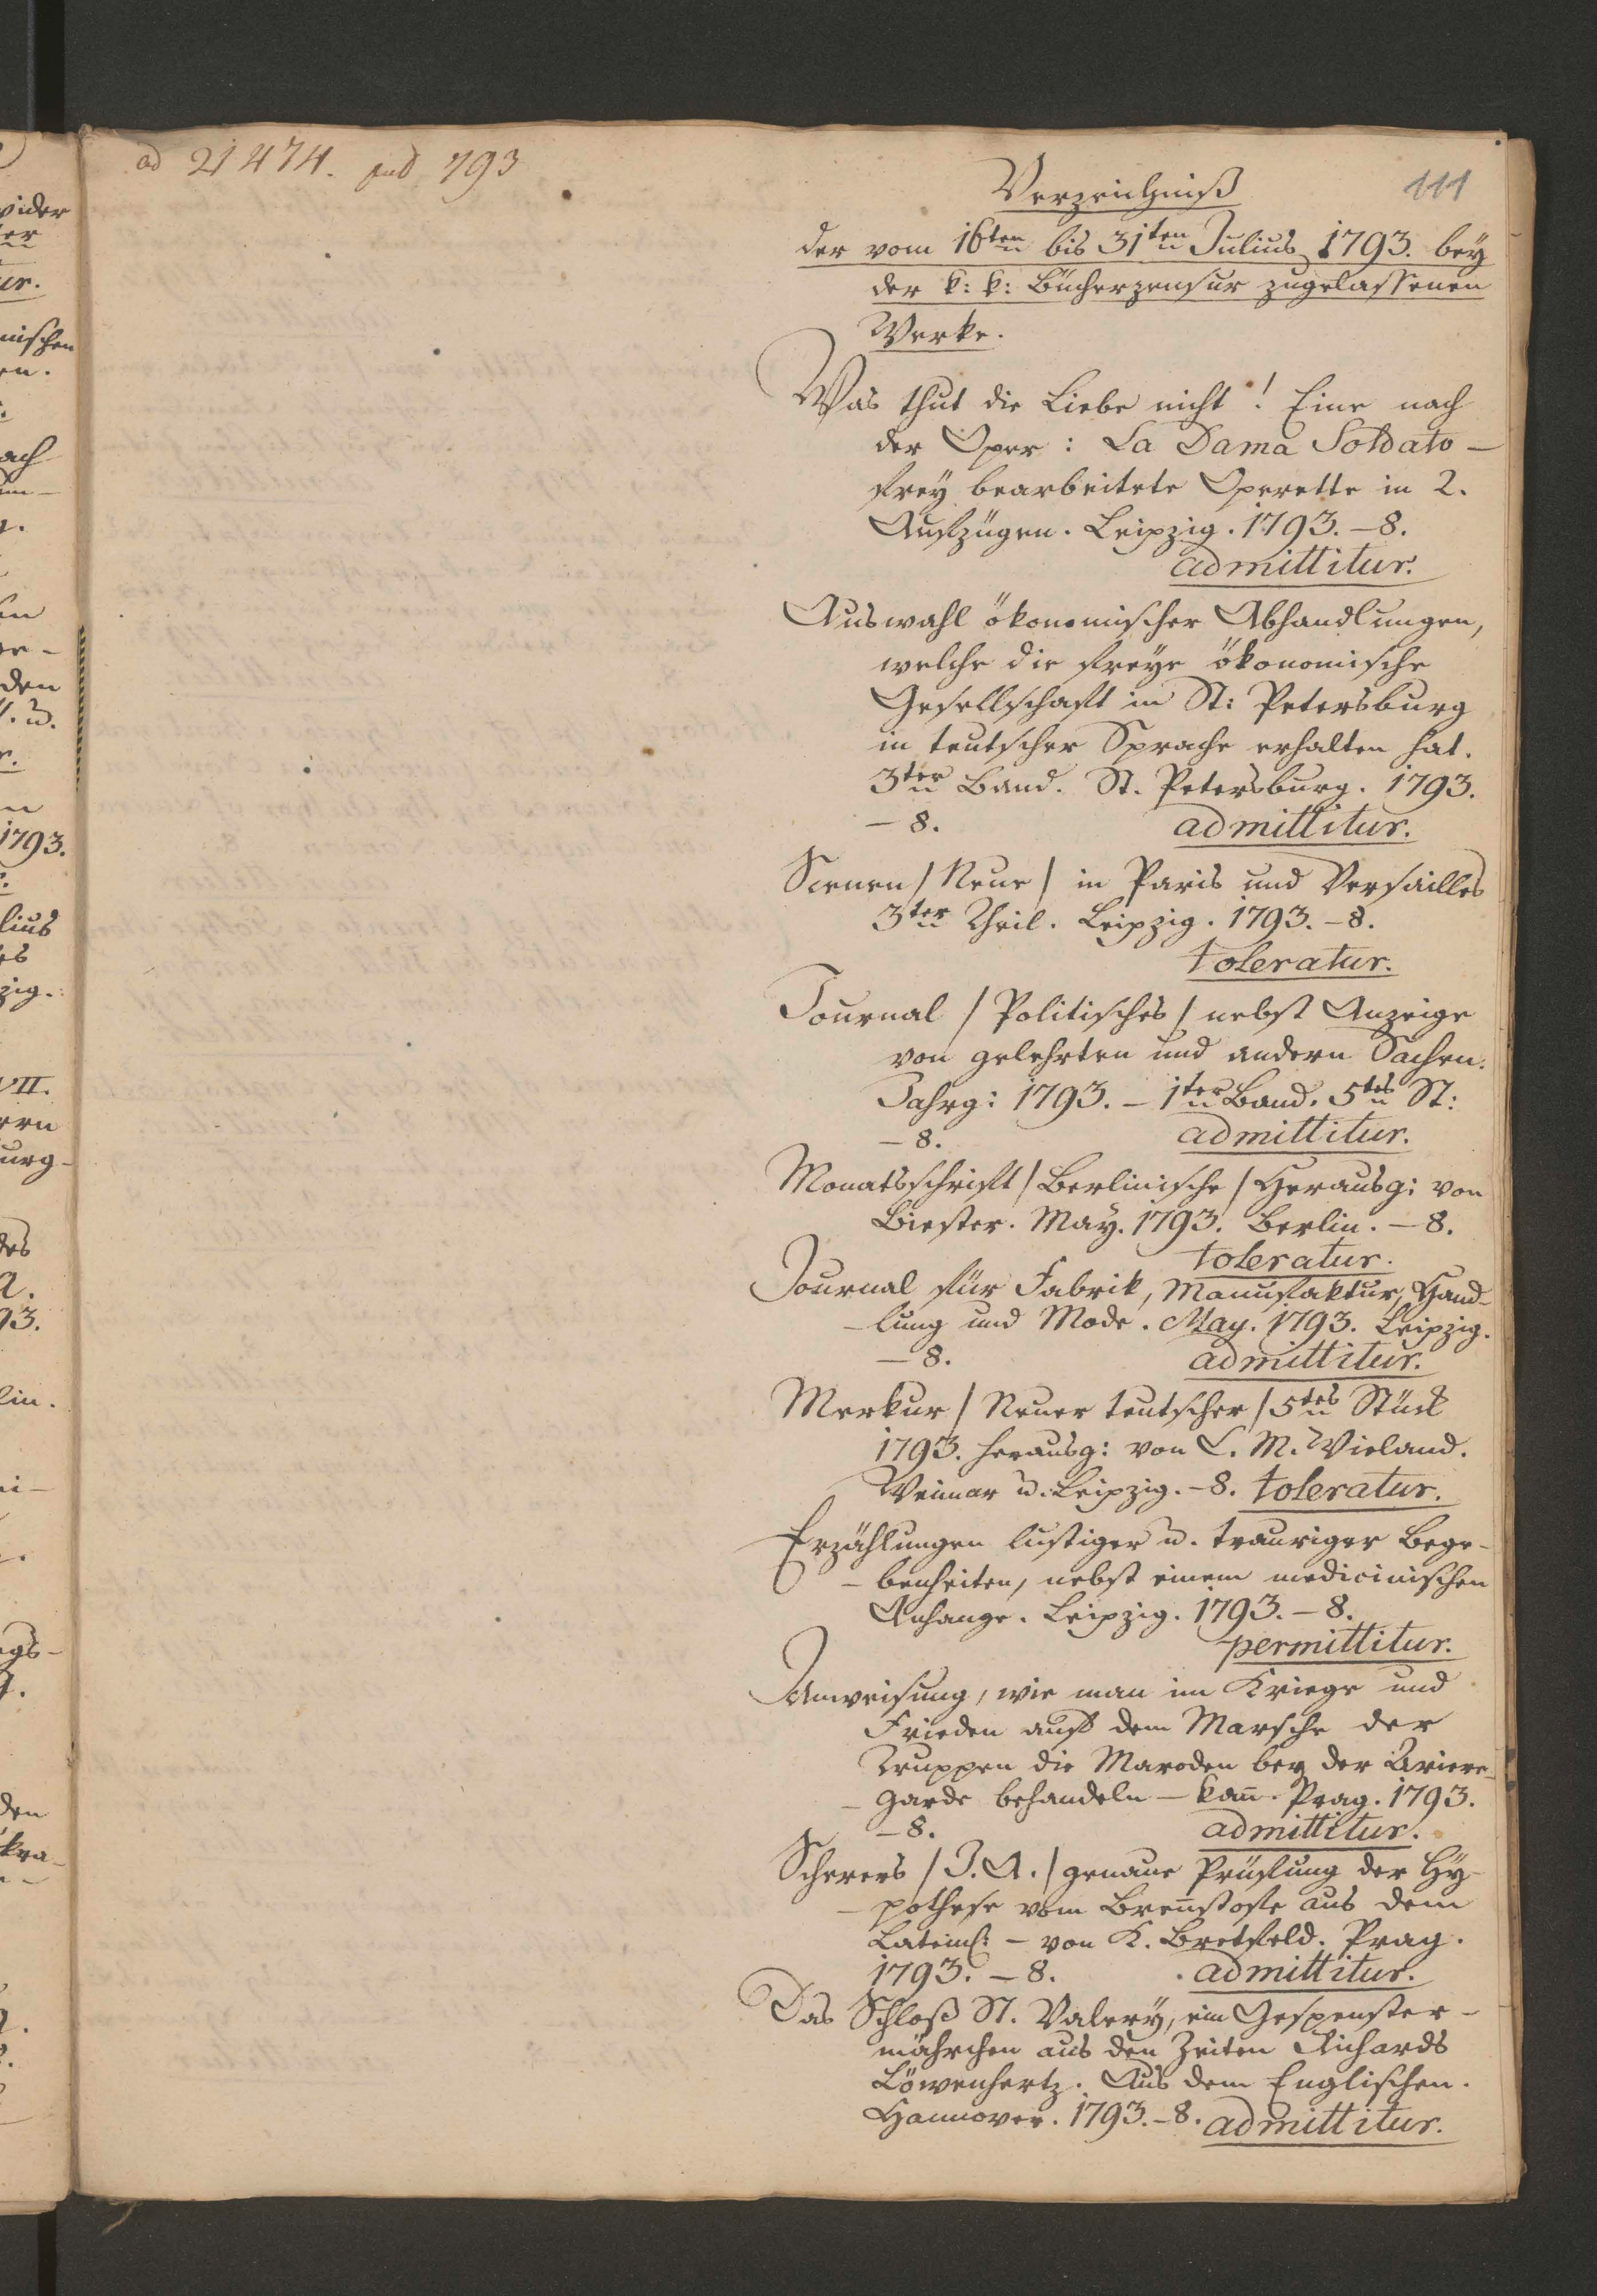 ad 21474. pud 793
111
Verzeichniß
der vom 16ten bis 31ten Julius 1793. bey
der k: k: Bücherzensur zugelassenen
Werke.
Was thut die Liebe nicht! Eine nach
der Oper: La Dama Soldato —
frey bearbeitete Operette in 2.
Aufzügen. Leipzig. 1793. – 8.
admittitur.
Auswahl ökonomischer Abhandlungen,
welche die freye ökonomische
Gesellschaft in St: Petersburg
in teutscher Sprache erhalten hat.
3ter Band. St. Petersburg. 1793.
– 8. admittitur.
Scenen / Neue / in Paris und Versailles
3ter Theil. Leipzig. 1793. – 8.
toleratur.
Journal / Politisches / nebst Anzeige
von gelehrten und andern Sachen.
Jahrg: 1793. – 1ter Band. 5tes St:
– 8. admittitur.
Monatsschrift / Berlinische / Herausg: von
Biester. May. 1793. Berlin. – 8.
toleratur.
Journal für Fabrik, Manufaktur, Hand-
-lung und Mode. May. 1793. Leipzig.
– 8. admittitur.
Merkur / Neuer teutscher / 5tes Stück
1793. herausg: von C. M. Wieland.
Weimar u. Leipzig. – 8. toleratur.
Erzählungen lustiger u. trauriger Bege-
-benheiten, nebst einem medicinischen
Anhange. Leipzig. 1793. – 8.
permittitur.
Anweisung, wie man im Kriege und
Frieden auf dem Marsche der
Truppen die Maroden bey der Ariere-
-Garde behandeln – kañ. Prag. 1793.
– 8. admittitur.
Scherers / J. A. / genaue Prüfung der Hy-
-pothese vom Breñstofe aus dem
Latein: – von K. Bretfeld. Prag.
1793. – 8. admittitur.
Das Schloß St. Valery, ein Gespenster-
mährchen aus den Zeiten Richards
Löwenhertz. Aus dem Englischen.
Hannover. 1793. – 8. admittitur.